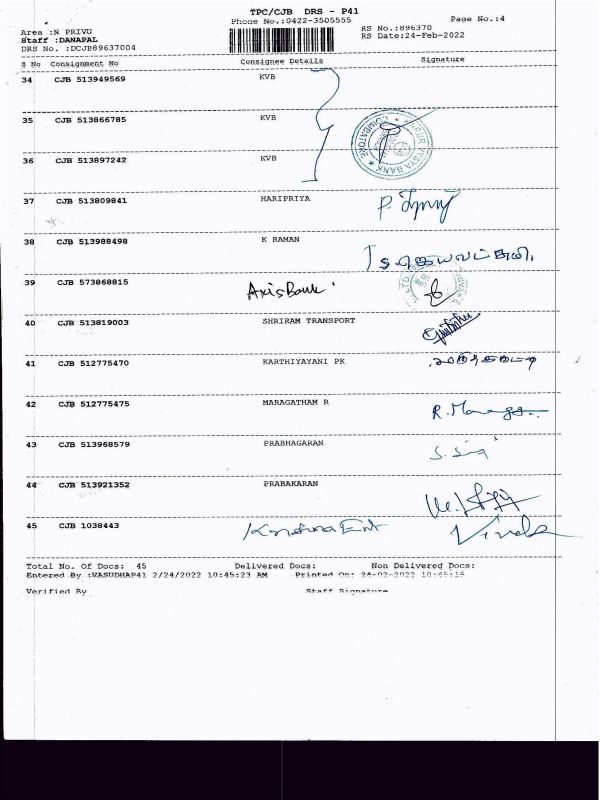 TPC/CJB DRS - P41
Phone No.:0422-3505555
Page No.:4
Area :N PRIVU
Staff :DANAPAL
DRS No. :DCJB89637004
RS No.:896370
RS Date:24-Feb-2022
S No Consignment No Consignee Details Signature
34 CJB 513949569 KVB
35 CJB 513866785 KVB
36 CJB 513897242 KVB
37 CJB 513809841 HARIPRIYA
38 CJB 513988498 K RAMAN
39 CJB 573868815 Axis Bank
40 CJB 513819003 SHRIRAM TRANSPORT
41 CJB 512775470 KARTHIYAYANI PK
42 CJB 512775475 MARAGATHAM R
43 CJB 513968579 PRABHAGARAN
44 CJB 513921352 PRABAKARAN
45 CJB 1038443 Krishna Ent
Total No. Of Docs: 45 Delivered Docs: Non Delivered Docs:
Entered By :VASUDHAP41 2/24/2022 10:45:23 AM Printed On: 24-02-2022
Verified By Staff Signature